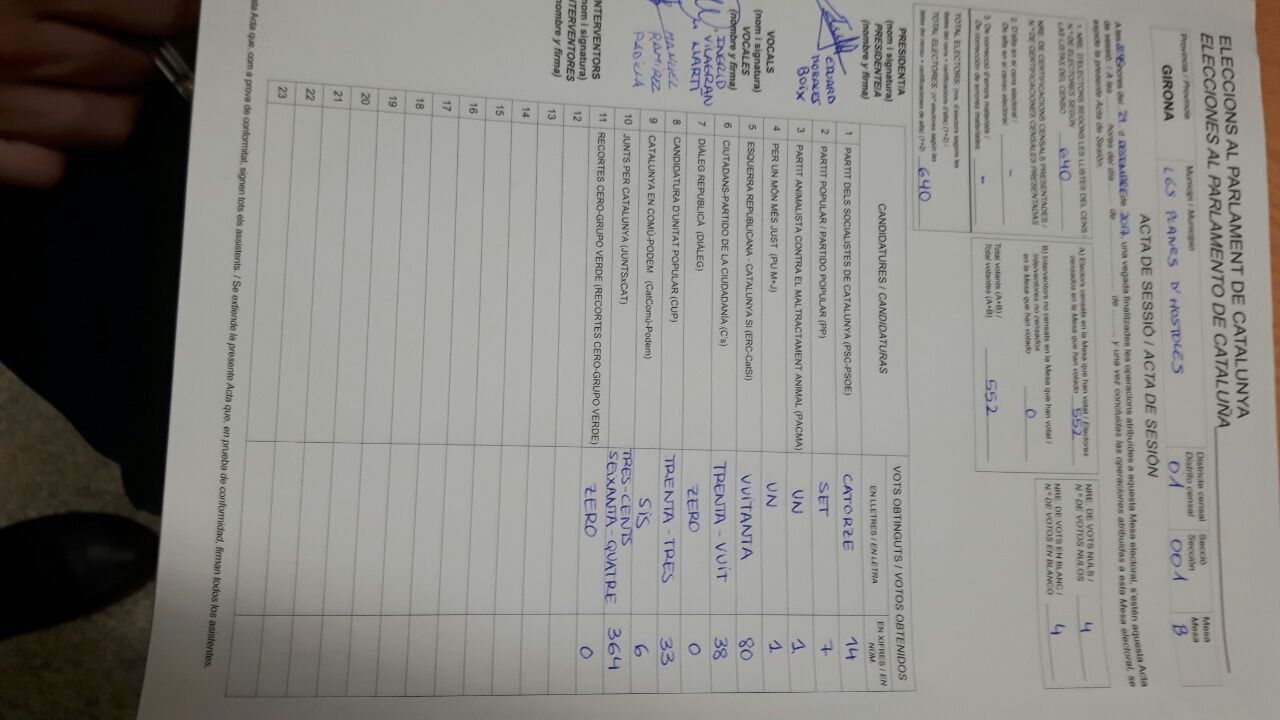 ELECCIONS AL PARLAMENT DE CATALUNYA
ELECCIONES AL PARLAMENTO DE CATALUÑA
Província / Provincia
GIRONA
Municipi / Municipio
LES PLANES D'HOSTOLES
Districte censal
Distrito censal
01
Secció
Sección
001
Mesa
Mesa
B
ACTA DE SESSIÓ / ACTA DE SESIÓN
A les hores del 21 d DESEMBRE de 2017, una vegada finalitzades les operacions atribuïdes a aquesta Mesa electoral, s'estén aquesta Acta
de sessió. / A las horas del día de de , y una vez concluidas las operaciones atribuidas a esta Mesa electoral, se
expide la presente Acta de Sesión:
1. NRE. D'ELECTORS SEGONS LES LLISTES DEL CENS /
N.º DE ELECTORES SEGÚN
LAS LISTAS DEL CENSO 640
NRE. DE CERTIFICACIONS CENSALS PRESENTADES /
N.º DE CERTIFICACIONES CENSALES PRESENTADAS
2. D'alta en el cens electoral /
De alta en el censo electoral: -
3. De correcció d'errors materials /
De corrección de errores materiales: -
TOTAL ELECTORS: (nre. d'electors segons les
llistes del cens + certificacions d'alta) (1+2) /
TOTAL ELECTORES: (nº electores según las
listas del censo + certificaciones de alta) (1+2) 640
A) Electors censats en la Mesa que han votat / Electores
censados en la Mesa que han votado 552
B) Interventors no censats en la Mesa que han votat /
Interventores no censados
en la Mesa que han votado 0
Total votants (A+B) /
Total votantes (A+B) 552
NRE. DE VOTS NULS /
N.º DE VOTOS NULOS 4
NRE. DE VOTS EN BLANC /
N.º DE VOTOS EN BLANCO 4
PRESIDENTIA
(nom i signatura)
PRESIDENTE/A
(nombre y firma)
EDUARD
MORALES
BOIX
VOCALS
(nom i signatura)
VOCALES
(nombre y firma)
INGRID
VILAGRAN
MARTÍ
MANUEL
RAMIREZ
PADILLA
INTERVENTORS
(nom i signatura)
INTERVENTORES
(nombre y firma)
CANDIDATURES / CANDIDATURAS
VOTS OBTINGUTS / VOTOS OBTENIDOS
EN LLETRES / EN LETRA
EN XIFRES / EN NÚM.
1 PARTIT DELS SOCIALISTES DE CATALUNYA (PSC-PSOE) CATORZE 14
2 PARTIT POPULAR / PARTIDO POPULAR (PP) SET 7
3 PARTIT ANIMALISTA CONTRA EL MALTRACTAMENT ANIMAL (PACMA) UN 1
4 PER UN MÓN MÉS JUST (PUM+J) UN 1
5 ESQUERRA REPUBLICANA - CATALUNYA SÍ (ERC-CatSÍ) VUITANTA 80
6 CIUTADANS-PARTIDO DE LA CIUDADANÍA (C's) TRENTA-VUIT 38
7 DIÀLEG REPUBLICÀ (DIÀLEG) ZERO 0
8 CANDIDATURA D'UNITAT POPULAR (CUP) TRENTA-TRES 33
9 CATALUNYA EN COMÚ-PODEM (CatComú-Podem) SIS 6
10 JUNTS PER CATALUNYA (JUNTSxCAT) TRES-CENTS SEIXANTA-QUATRE 364
11 RECORTES CERO-GRUPO VERDE (RECORTES CERO-GRUPO VERDE) ZERO 0
12
13
14
15
16
17
18
19
20
21
22
23
sta Acta que, com a prova de conformitat, signen tots els assistents. / Se extiende la presente Acta que, en prueba de conformidad, firman todos los asistentes.